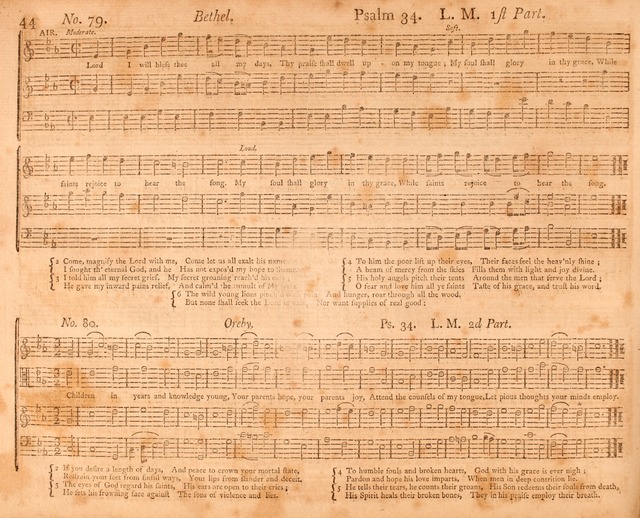 44 No. 79. Bethel. Psalm 34. L. M. 1ſt Part.
AIR. Moderate. Soft.
Lord I will bleſs thee all my days, Thy praiſe ſhall dwell up - on my tongue; My ſoul ſhall glory in thy grace, While
Loud.
ſaints rejoice to hear the ſong. My ſoul ſhall glory in thy grace, While ſaints rejoice to hear the ſong.
2 Come, magnify the Lord with me, Come let us all exalt his name
I ſought th' eternal God, and he Has not expos'd my hope to ſhame.
3 I told him all my ſecret grief, My ſecret groaning reach'd his
He gave my inward pains relief, And calm'd the tumult of
4 To him the poor lift up their eyes, Their faces feel the heav'nly ſhine;
A beam of mercy from the ſkies Fills them with light and joy divine.
5 His holy angels pitch their tents Around the men that ſerve the Lord;
O fear and love him all ye ſaints Taſte of his grace, and truſt his word.
6 The wild young lions And hunger, roar through all the wood,
But none ſhall ſeek the Lord Nor want ſupplies of real good;
No. 80. Oreby. Ps. 34. L. M. 2d Part.
Children in years and knowledge young, Your parents hope, your parents joy, Attend the counſels of my tongue, Let pious thoughts your minds employ.
2 If you deſire a length of days, And peace to crown your mortal ſtate,
Reſtrain your feet from ſinful ways, Your lips from ſlander and deceit.
3 The eyes of God regard his ſaints, His ears are open to their cries;
He ſets his frowning face againſt The ſons of violence and lies.
4 To humble ſouls and broken hearts, God with his grace is ever nigh;
Pardon and hope his love imparts, When men in deep contrition lie.
5 He tells their tears, he counts their groans, His Son redeems their ſouls from death,
His Spirit heals their broken bones, They in his praiſe employ their breath.